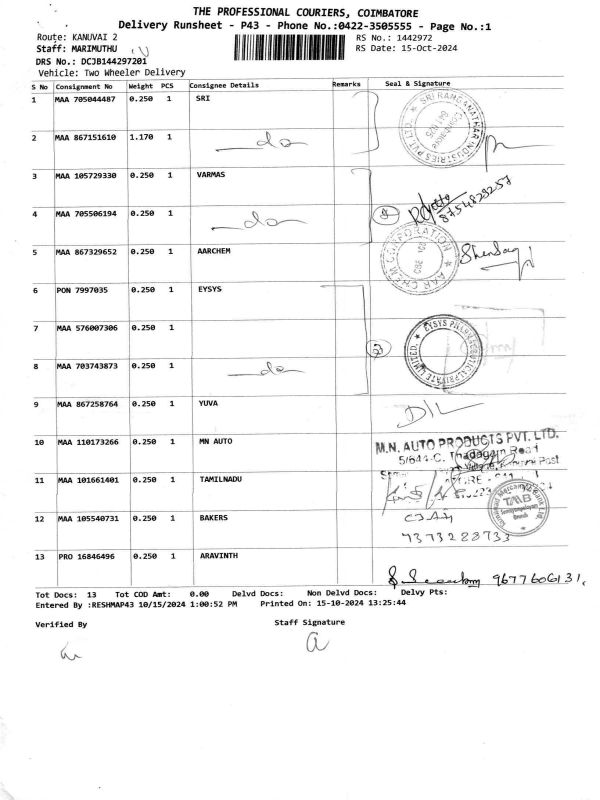 THE PROFESSIONAL COURIERS, COIMBATORE
Delivery Runsheet - P43 - Phone No.:0422-3505555 - Page No.:1
Route: KANUVAI 2 RS No.: 1442972
Staff: MARIMUTHU RS Date: 15-Oct-2024
DRS No.: DCJB144297201
Vehicle: Two Wheeler Delivery
S No Consignment No Weight PCS Consignee Details Remarks Seal & Signature
1 MAA 705044487 0.250 1 SRI
SRI RANGANATHAR INDUSTRIES PVT. LTD.
2 MAA 867151610 1.170 1 do
3 MAA 105729330 0.250 1 VARMAS
8754829257
4 MAA 705506194 0.250 1 do
5 MAA 867329652 0.250 1 AARCHEM
AAR CHEM CORPORATION
6 PON 7997035 0.250 1 EYSYS
7 MAA 576007306 0.250 1
EYSYS PHARMACEUTICAL PRIVATE LIMITED
8 MAA 703743873 0.250 1 do
9 MAA 867258764 0.250 1 YUVA D/L
10 MAA 110173266 0.250 1 MN AUTO
M.N. AUTO PRODUCTS PVT. LTD.
5/644-C, Thadagam Road
Post
11 MAA 101661401 0.250 1 TAMILNADU
Tamilnad Mercantile Bank Ltd.
TMB
12 MAA 105540731 0.250 1 BAKERS
7373288733
13 PRO 16846496 0.250 1 ARAVINTH
9677606131
Tot Docs: 13 Tot COD Amt: 0.00 Delvd Docs: Non Delvd Docs: Delvy Pts:
Entered By :RESHMAP43 10/15/2024 1:00:52 PM Printed On: 15-10-2024 13:25:44
Verified By Staff Signature